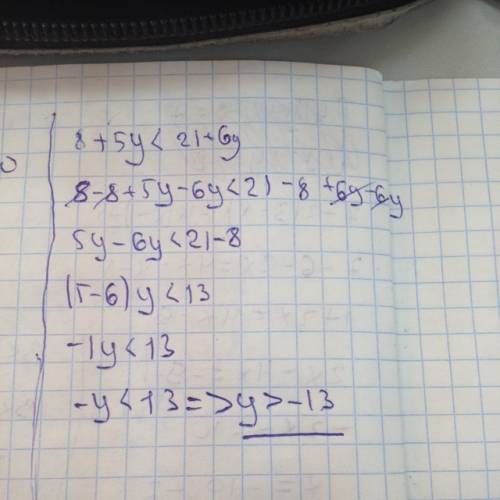 8+5y<21+6y
8-8+5y-6y<21-8+6y-6y
5y-6y<21-8
(5-6)y<13
-1y<13
-y<13=>y>-13